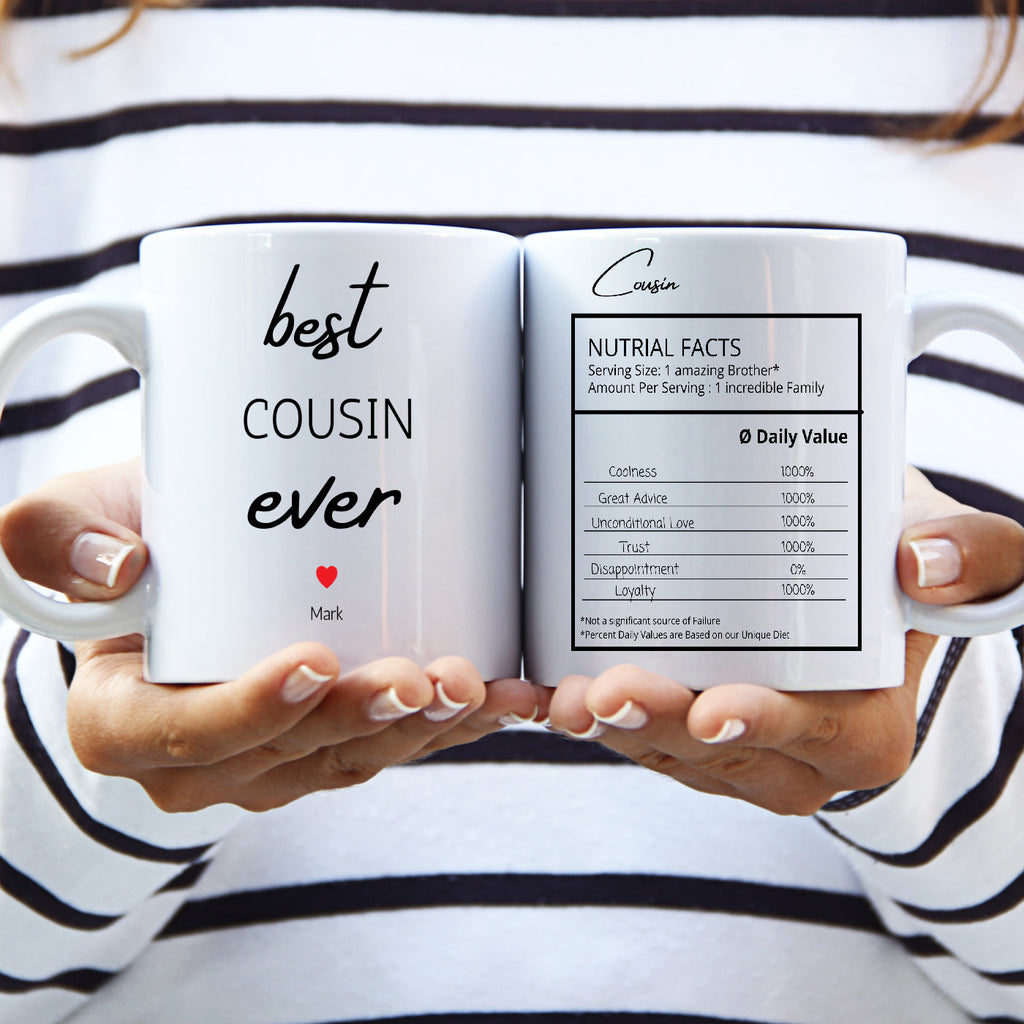 best
COUSIN
ever
Mark
Cousin
NUTRIAL FACTS
Serving Size: 1 amazing Brother*
Amount Per Serving : 1 incredible Family
Ø Daily Value
Coolness 1000%
Great Advice 1000%
Unconditional Love 1000%
Trust 1000%
Disappointment 0%
Loyalty 1000%
*Not a significant source of Failure
*Percent Daily Values are Based on our Unique Diet